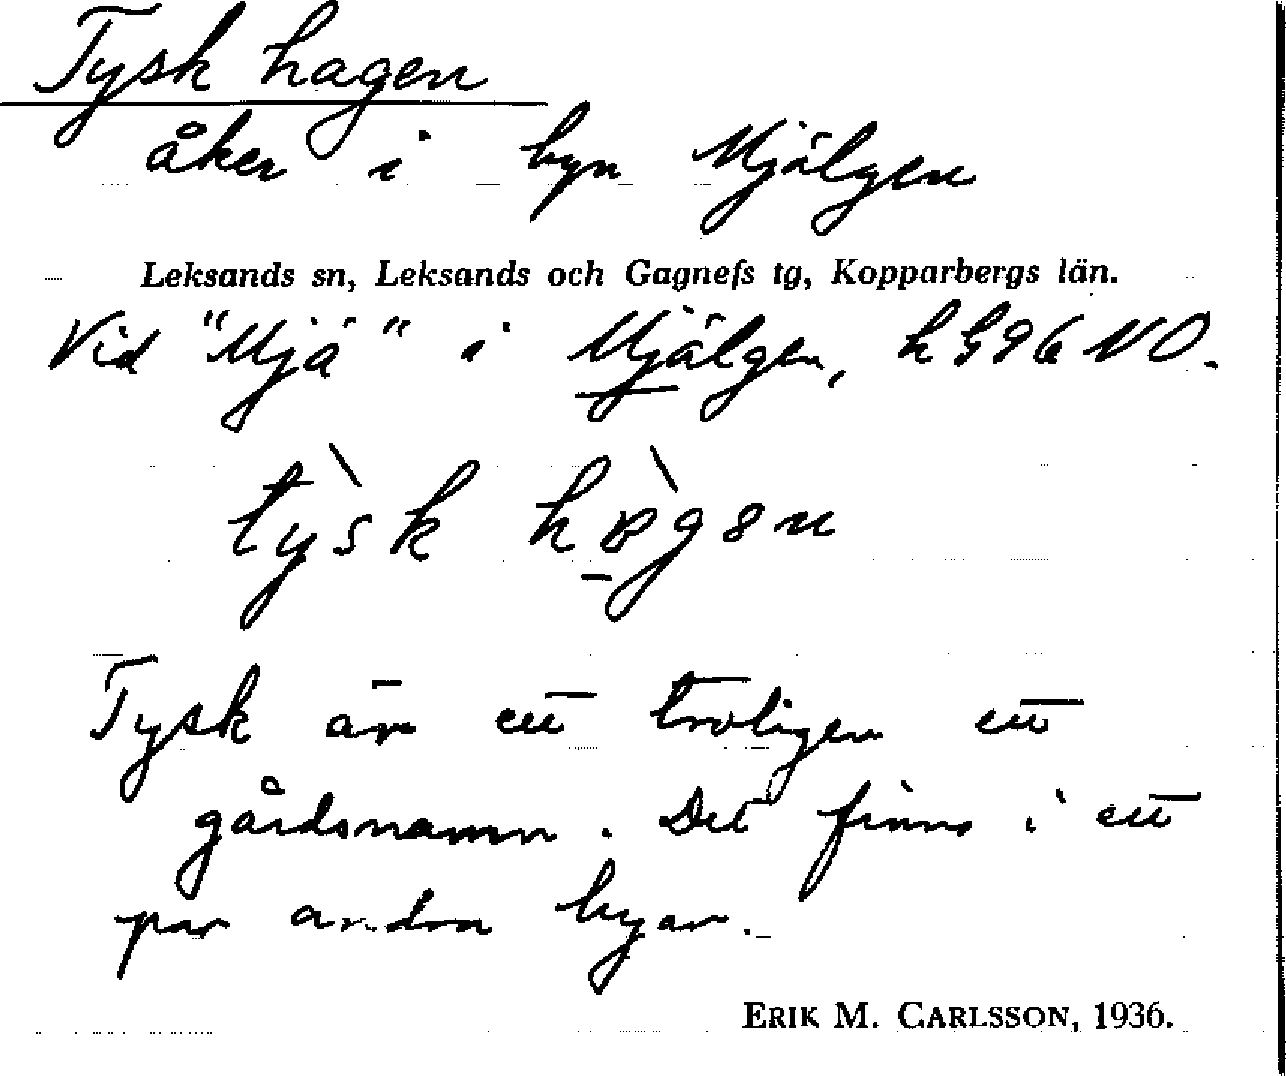 Tysk hagen
åker i byn Mjälgen
Leksands sn, Leksands och Gagnefs tg, Kopparbergs län.
Vid "Mjä" i Mjälgen, NO.
Tysk är ett troligen ett
gårdsnamn. Det finns i ett
par andra byar.
ERIK M. CARLSSON, 1936.